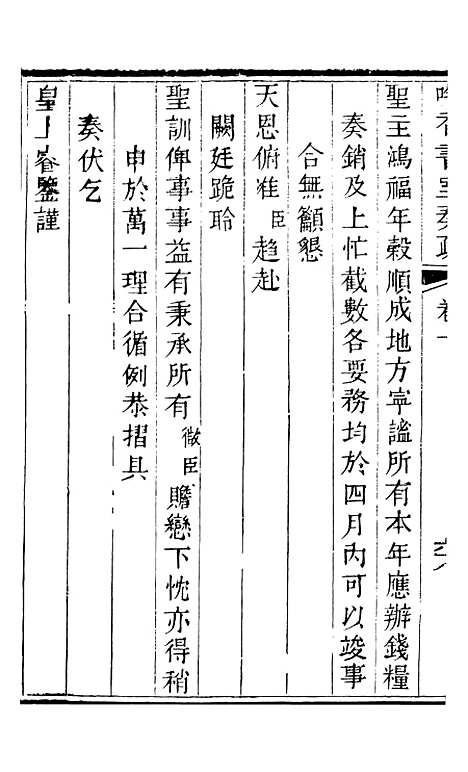 聖主鴻福年穀順成地方寧謐所有本年應辦錢糧
奏銷及上忙截數各要務均於四月內可以竣事
合無籲懇
天恩俯准臣趨赴
闕廷跪聆
聖訓俾事事益有秉承所有微臣瞻戀下忱亦得稍
申於萬一理合循例恭摺具
奏伏乞
皇上睿鑒謹